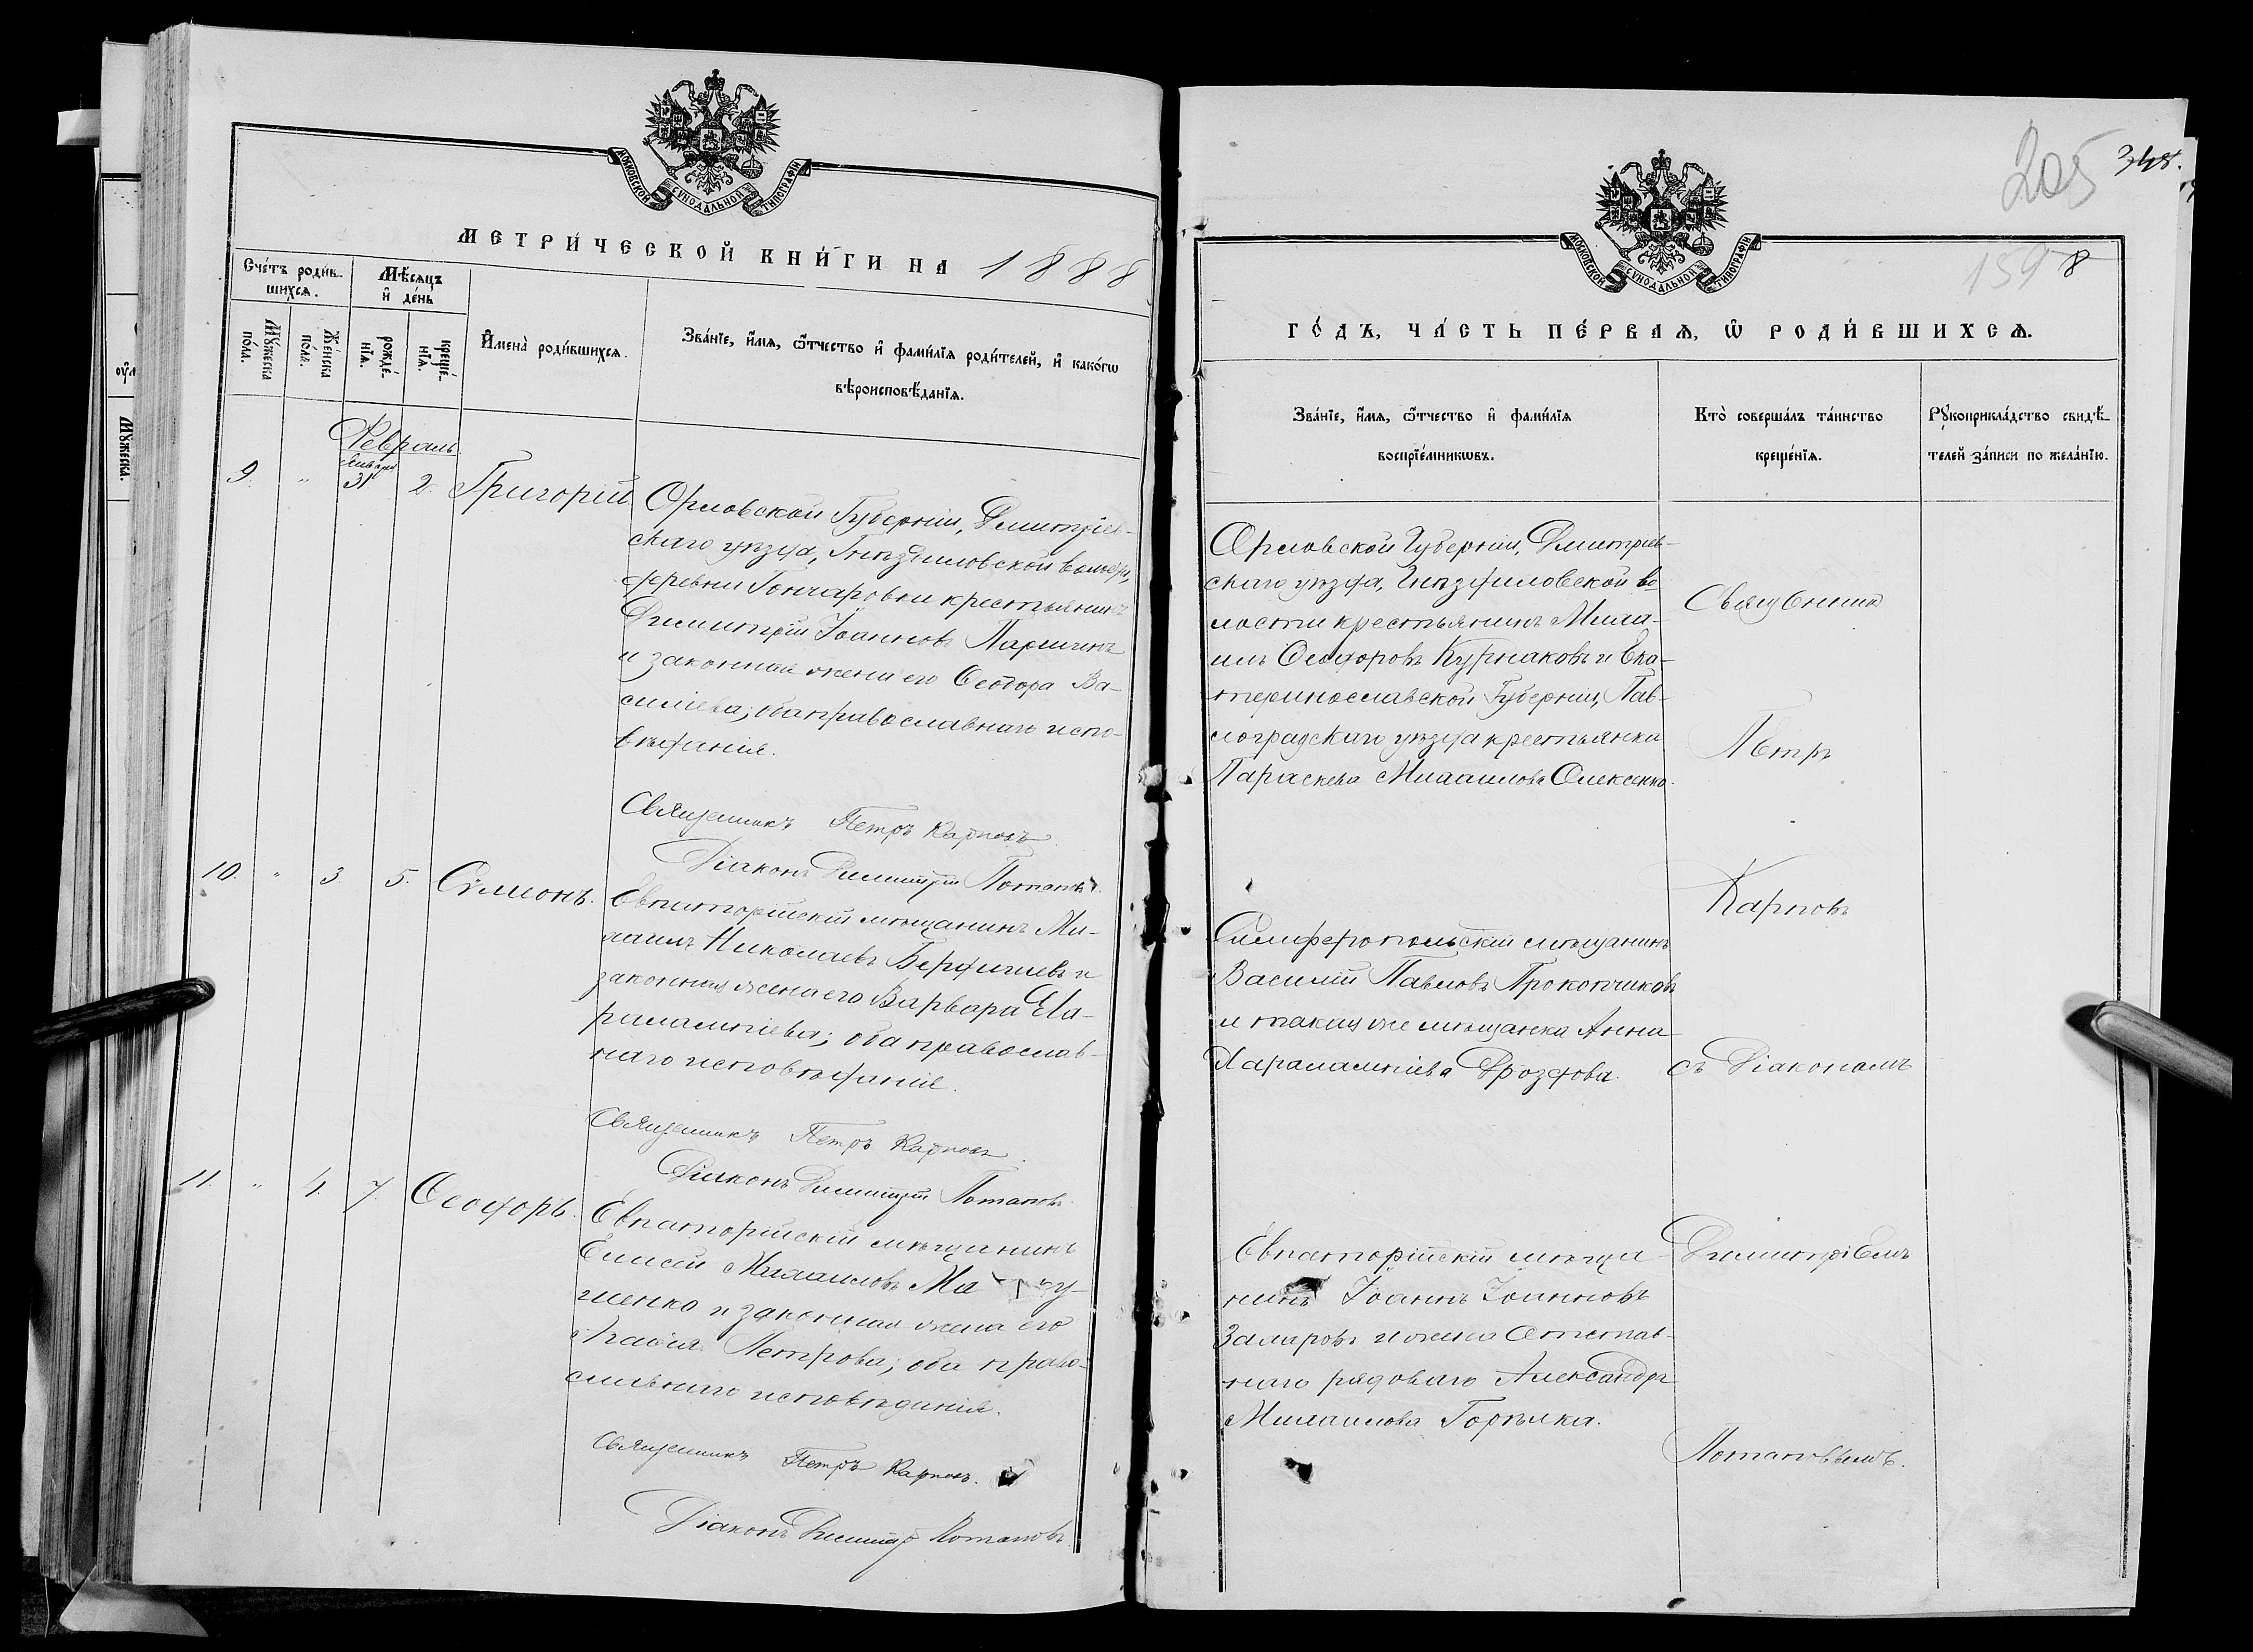 МОСКОВСКОЙ СѴНОДАЛЬНОЙ ТИПОГРАФІИ
МЕТРИ́ЧЕСКОЙ КНИ́ГИ НА 1888
Сче́тъ роди́в-
шихсѧ.
Мѣ́сѧцъ
и҆ де́нь
Мꙋ́жеска
по́ла.
Же́нска
по́ла.
рожде́-
нїѧ.
креще́-
нїѧ.
И҆мена̀ роди́вшихсѧ.
Зва́нїе, и҆́мѧ, ѻ҆́тчество и҆ фами́лїѧ роди́телей, и҆ како́гѡ
вѣроисповѣ́данїѧ.
Февраль
9. " Января 31 2. Григорій
Орловской Губерніи, Дмитріев-
скаго уѣзда, Гнѣздиловской волости,
деревни Гончаровки крестьянинъ
Димитрій Іоанновъ Паршинъ
и законная жена его Ѳеодора Ва-
силіева; оба православнаго испо-
вѣданія.
Священникъ Петръ Карповъ
Діаконъ Димитрій Потаповъ
10. " 3. 5. Сѵмеонъ.
Евпаторійскій мѣщанинъ Ми-
хаилъ Николаевъ Бердичевъ и
законная жена его Варвара Ха-
ралампіева; оба православ-
наго исповѣданія.
Священникъ Петръ Карповъ
Діаконъ Димитрій Потаповъ
11. " 4. 7. Ѳеодоръ.
Евпаторійскій мѣщанинъ
Елисей Михаиловъ
и законная жена его
Агафія Петрова; оба право-
славнаго исповѣданія.
Священникъ Петръ Карповъ.
Діаконъ Димитр Потаповъ
205
348.
159 8
МОСКОВСКОЙ СѴНОДАЛЬНОЙ ТИПОГРАФІИ
ГО́ДЪ, ЧА́СТЬ ПЕ́РВАѦ, Ѡ҆ РОДИ́ВШИХСѦ.
Зва́нїе, и҆́мѧ, ѻ҆́тчество и҆ фами́лїѧ
воспрїе́мникѡвъ.
Кто̀ соверша́лъ та́инство
креще́нїѧ.
Рꙋкоприкла́дство свидѣ́-
телей за́писи по жела́нїю.
Орловской Губерніи, Дмитріев-
скаго уѣзда, Гнѣздиловской во-
лости крестьянинъ Миха-
илъ Ѳеодоровъ Курнаковъ и Ека-
теринославской Губерніи, Пав-
лоградскаго уѣзда крестьянка
Параскева Михаилова Олексенко.
Священникъ
Петръ
Карповъ
съ Діакономъ
Димитріемъ
Потаповымъ.
Симферопольскій мѣщанинъ
Василій Павловъ Прокопчиковъ
и такая же мѣщанка Анна
Харалампіева Дроздова.
Евпаторійскій мѣща-
нинъ Іоаннъ Іоанновъ
Замаровъ и жена отстав-
наго рядоваго Александра
Михаилова Горѣлка.